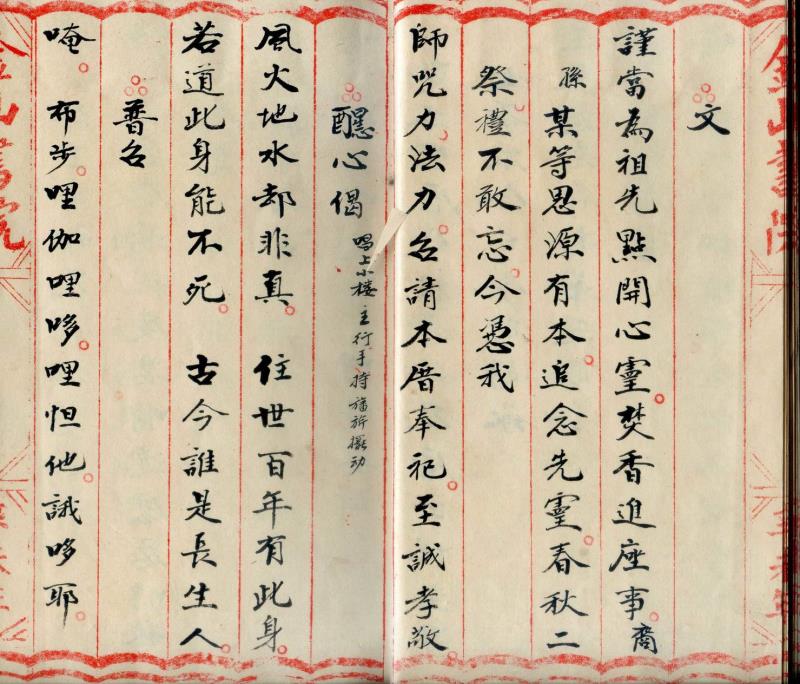 文
謹當為祖先點開心靈焚香進座事裔
孫某等思源有本追念先靈春秋二
祭禮不敢忘今憑我
師咒力法力名請本厝奉祀至誠孝敬
醒心偈 唱上小楼 主行手持旛旂搖动
風火地水却非真 住世百年有此身
若道此身能不死 古今誰是長生人
普名
唵 布步哩伽哩哆哩怛他誐哆耶